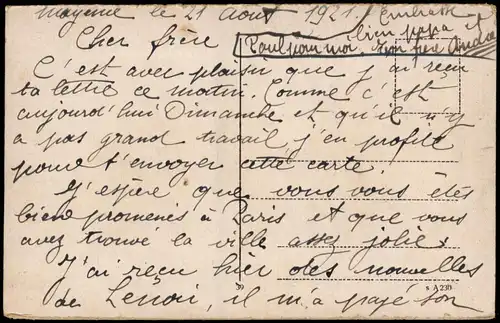 Mayenne le 21 Août 1921 / Embrasse
bien papa
Cher frère Paul pour moi. ton frère André
C'est avec plaisir que j'ai reçu
ta lettre ce matin. Comme c'est
aujourd'hui Dimanche et qu'il n'y
a pas grand travail, j'en profite
pour t'envoyer cette carte.
J'espère que vous vous êtes
bien promenés à Paris et que vous
avez trouvé la ville assez jolie.
J'ai reçu hier des nouvelles
de Lenoir, il m'a payé son
39 s A 230